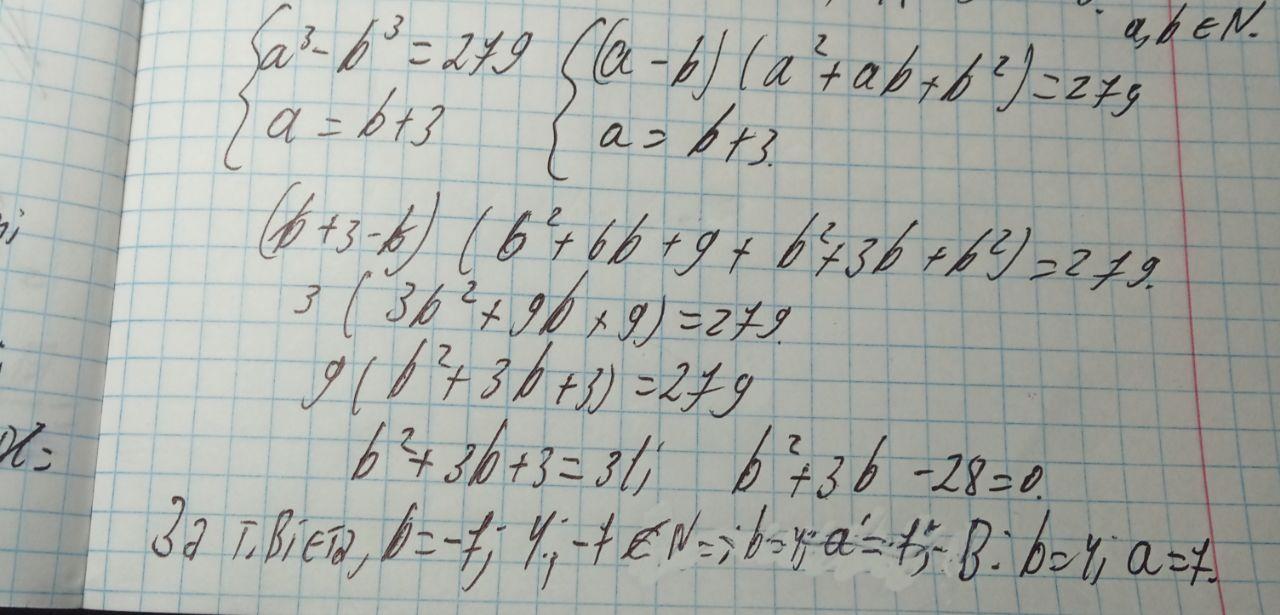 a, b ∈ N.
{a³ - b³ = 279 {(a - b)(a² + ab + b²) = 279
a = b+3 a = b+3.
(b + 3 - b) (b² + 6b + 9 + b² + 3b + b²) = 279.
3 (3b² + 9b + 9) = 279.
9 (b² + 3b + 3) = 279
b² + 3b + 3 = 31; b² + 3b - 28 = 0.
x =
За т. Вієта, b = -7; 4; -7 ∉ N => b = 4; a = 7; В: b = 4; a = 7.